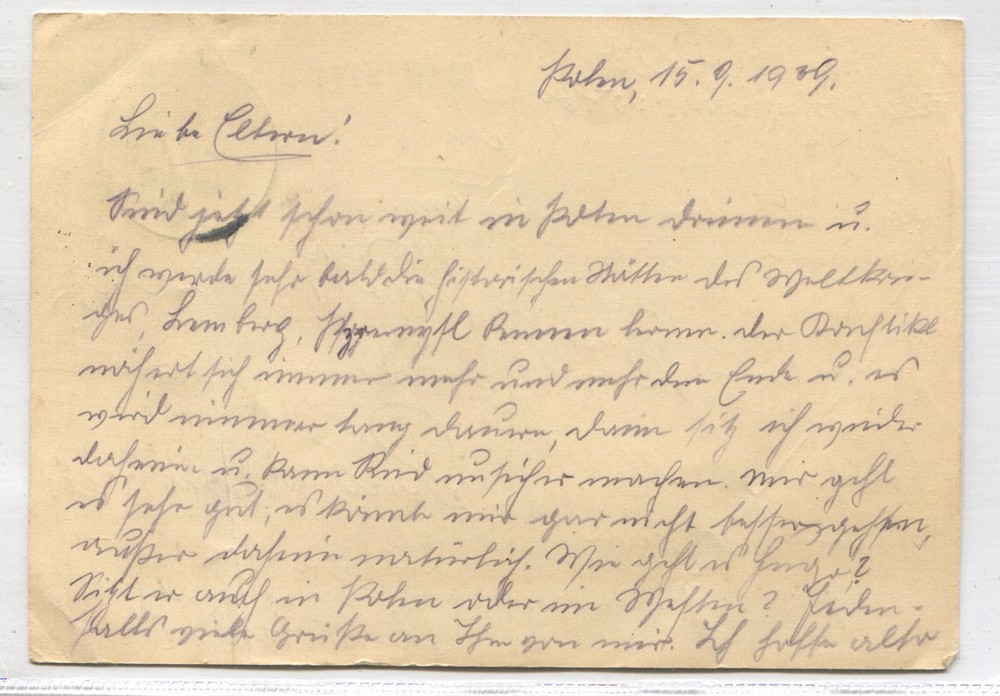 Polen, 15. 9. 1939.
Liebe Eltern!
Sind jetzt schon weit in Polen drinnen u.
ich werde sehr bald die historischen Stätten des Weltkrie-
ges, Lemberg, Przemysl kennen lernen. Der Konflikt
nähert sich immer mehr und mehr dem Ende u. es
wird nimmer lang dauern, dann sitz ich wieder
daheim u. kann Ried unsicher machen. Mir geht
es sehr gut, es könnte mir gar nicht besser gehen,
außer daheim natürlich. Wie geht es Hugo?
Sitzt er auch in Polen oder im Westen? Jeden-
falls viele Grüße an Ihm von mir. Ich hoffe also